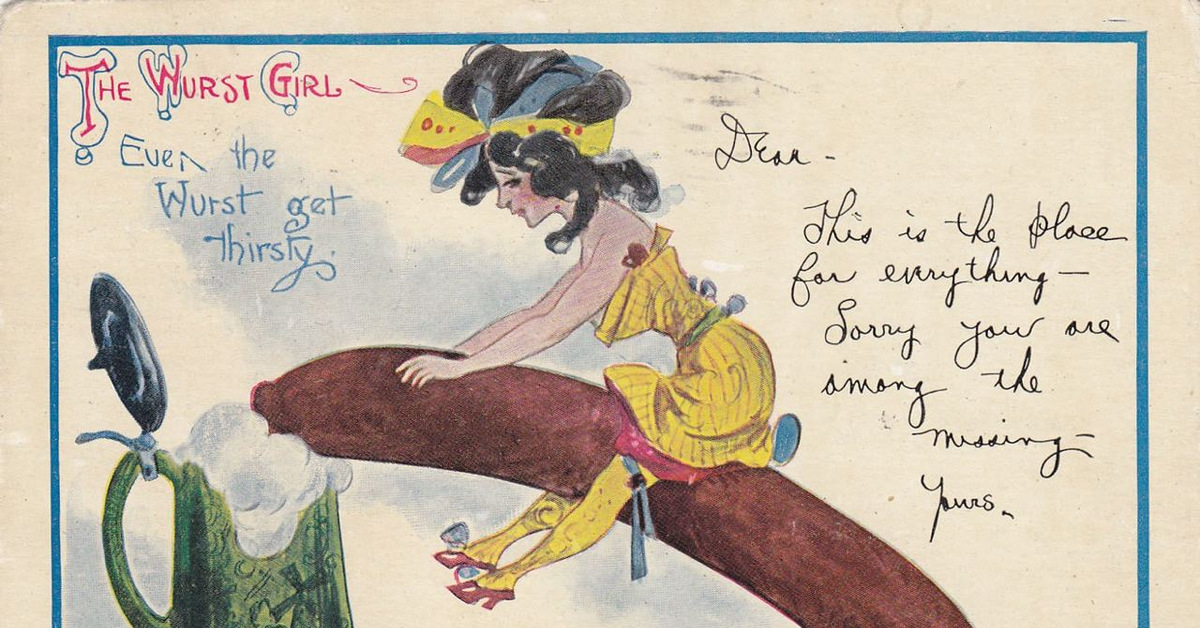 THE WURST GIRL
Even the
Wurst get
thirsty.
Dear -
This is the place
for everything -
Sorry you are
among the
missing -
Yours.